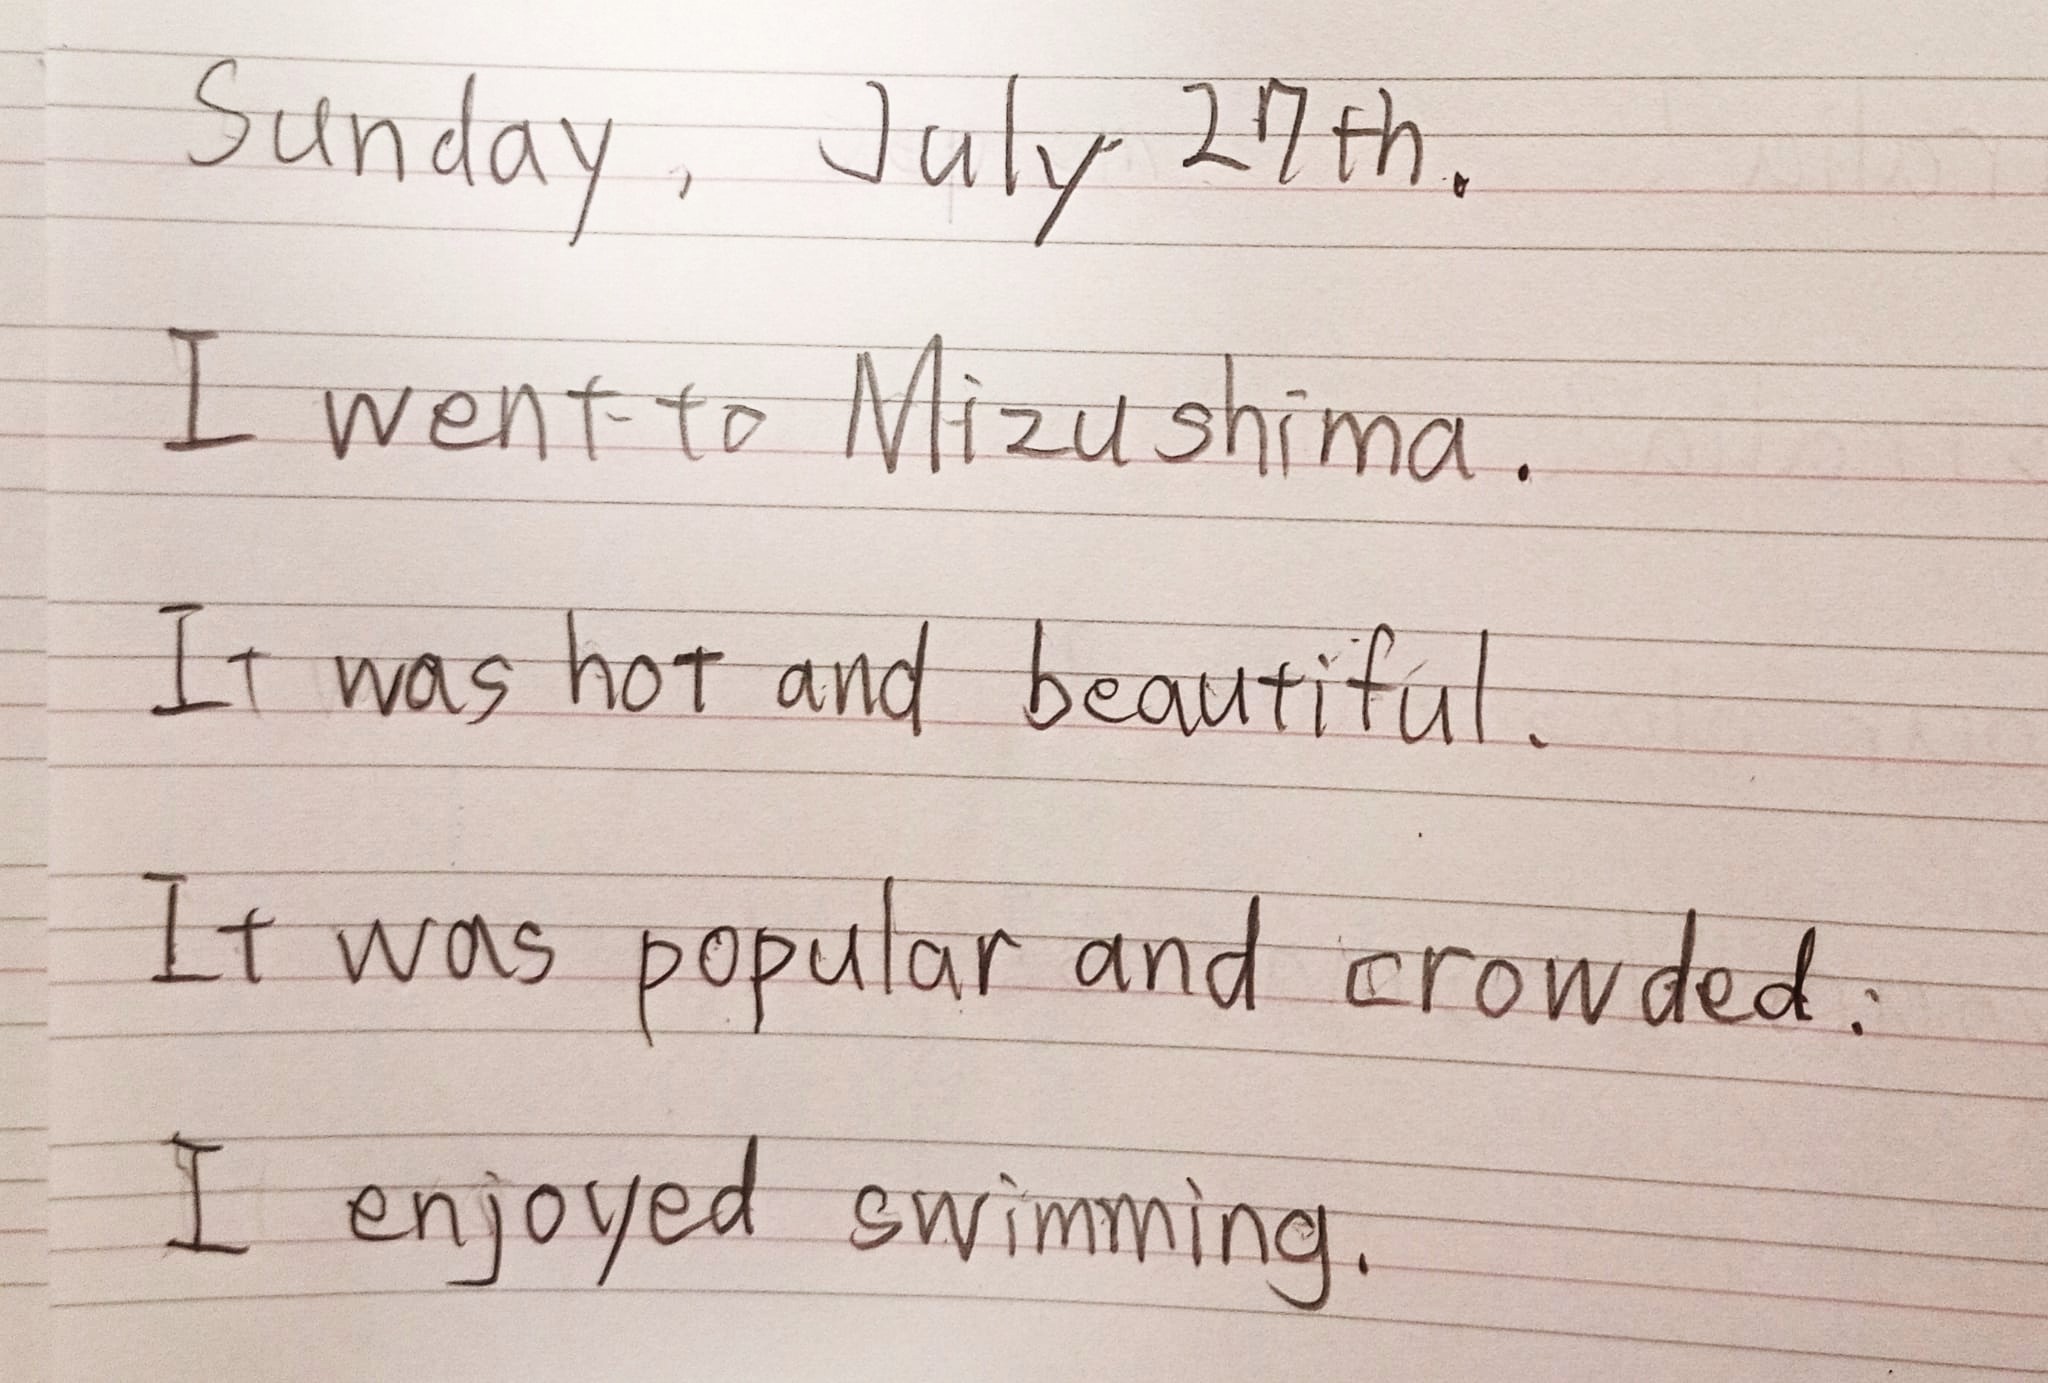 Sunday, July 27th.
I went to Mizushima.
It was hot and beautiful.
It was popular and crowded.
I enjoyed swimming.